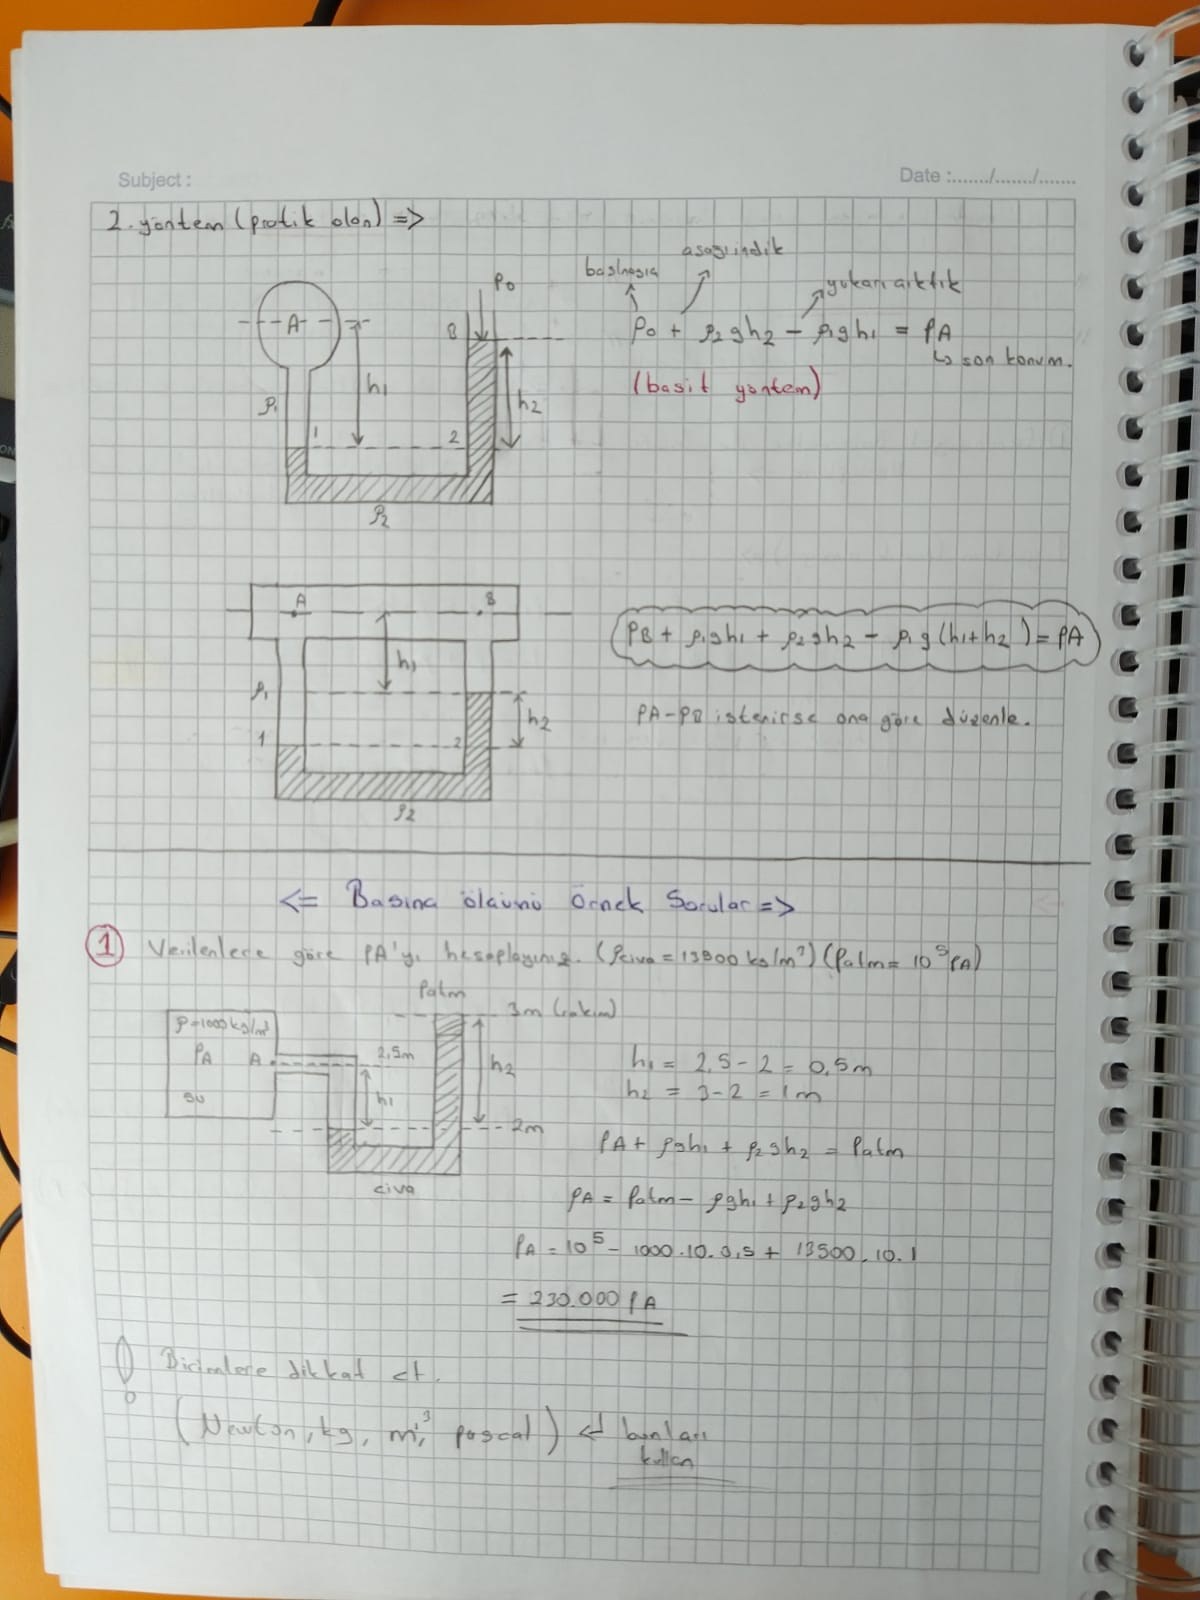 Subject :
Date :......./......./.......
2. yöntem (pratik olan) =>
aşağı indik
başlangıç
yukarı çıktık
P0
A
B
P0 + ρ2gh2 - ρ1gh1 = PA
↳ son konum.
(basit yöntem)
h1
h2
ρ1
1
2
ρ2
A
B
PB + ρ1gh1 + ρ2gh2 - ρ1g(h1+h2) = PA
h1
ρ1
h2
PA-PB istenirse ona göre düzenle.
1
2
ρ2
<= Basınç ölçümü Örnek Sorular =>
1 Verilenlere göre PA'yı hesaplayınız. (ρciva = 13500 kg/m³) (Patm = 10⁵ PA)
Patm
3m
ρ=1000kg/m³
PA A
2,5m
h2
h1
su
2m
civa
h1 = 2,5 - 2 = 0,5m
h2 = 3-2 = 1m
PA + ρgh1 + ρ2gh2 = Patm
PA = Patm - ρgh1 + ρ2gh2
PA = 10⁵ - 1000.10.0,5 + 13500.10.1
= 230.000 PA
! Birimlere dikkat et.
(Newton, kg, m³, pascal) ↵ bunları
kullan